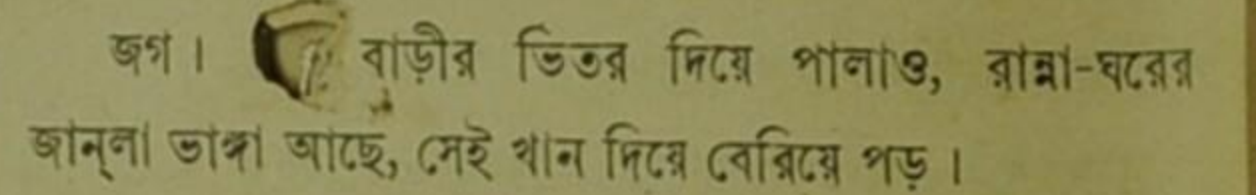 জগ। বাড়ীর ভিতর দিয়ে পালাও, রান্না-ঘরের
জান্‌লা ভাঙ্গা আছে, সেই খান দিয়ে বেরিয়ে পড়।